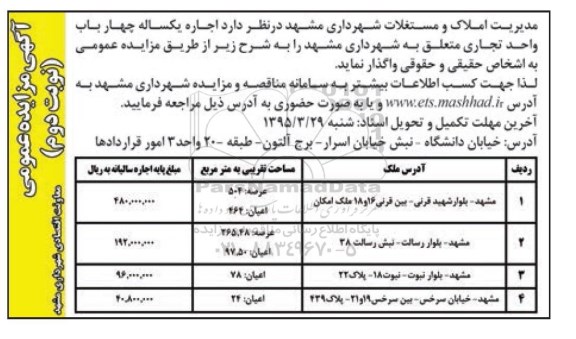 آگهی مزایده عمومی
(نوبت دوم)
معاونت اقتصادی شهرداری مشهد
مدیریت املاک و مستغلات شهرداری مشهد درنظر دارد اجاره یکساله چهار باب
واحد تجاری متعلق به شهرداری مشهد را به شرح زیر از طریق مزایده عمومی
به اشخاص حقیقی و حقوقی واگذار نماید.
لذا جهت کسب اطلاعات بیشتر به سامانه مناقصه و مزایده شهرداری مشهد به
آدرس www.ets.mashhad.ir و یا به صورت حضوری به آدرس ذیل مراجعه فرمایید.
آخرین مهلت تکمیل و تحویل اسناد: شنبه ۱۳۹۵/۳/۲۹
آدرس: خیابان دانشگاه - نبش خیابان اسرار- برج آلتون- طبقه -۲ واحد ۳ امور قراردادها
ردیف آدرس ملک مساحت تقریبی به متر مربع مبلغ پایه اجاره سالیانه به ریال
۱ مشهد- بلوار شهید قرنی- بین قرنی ۱۶و۱۸ ملک امکان عرصه: ۵۰۴ اعیان: ۴۶۲ ۴۸۰,۰۰۰,۰۰۰
۲ مشهد- بلوار رسالت- نبش رسالت ۳۸ عرصه: ۲۶۵,۴۸ اعیان: ۹۷,۵۰ ۱۹۲,۰۰۰,۰۰۰
۳ مشهد- بلوار نبوت- نبوت۱۸- پلاک۲۲ اعیان: ۷۸ ۹۶,۰۰۰,۰۰۰
۴ مشهد- خیابان سرخس- بین سرخس۱۹و۲۱- پلاک۴۳۹ اعیان: ۲۴ ۴۰,۸۰۰,۰۰۰
ParsNamadData
پایگاه اطلاع رسانی مناقصه و مزایده
۰۲۱-۸۸۳۴۹۶۷۰-۵